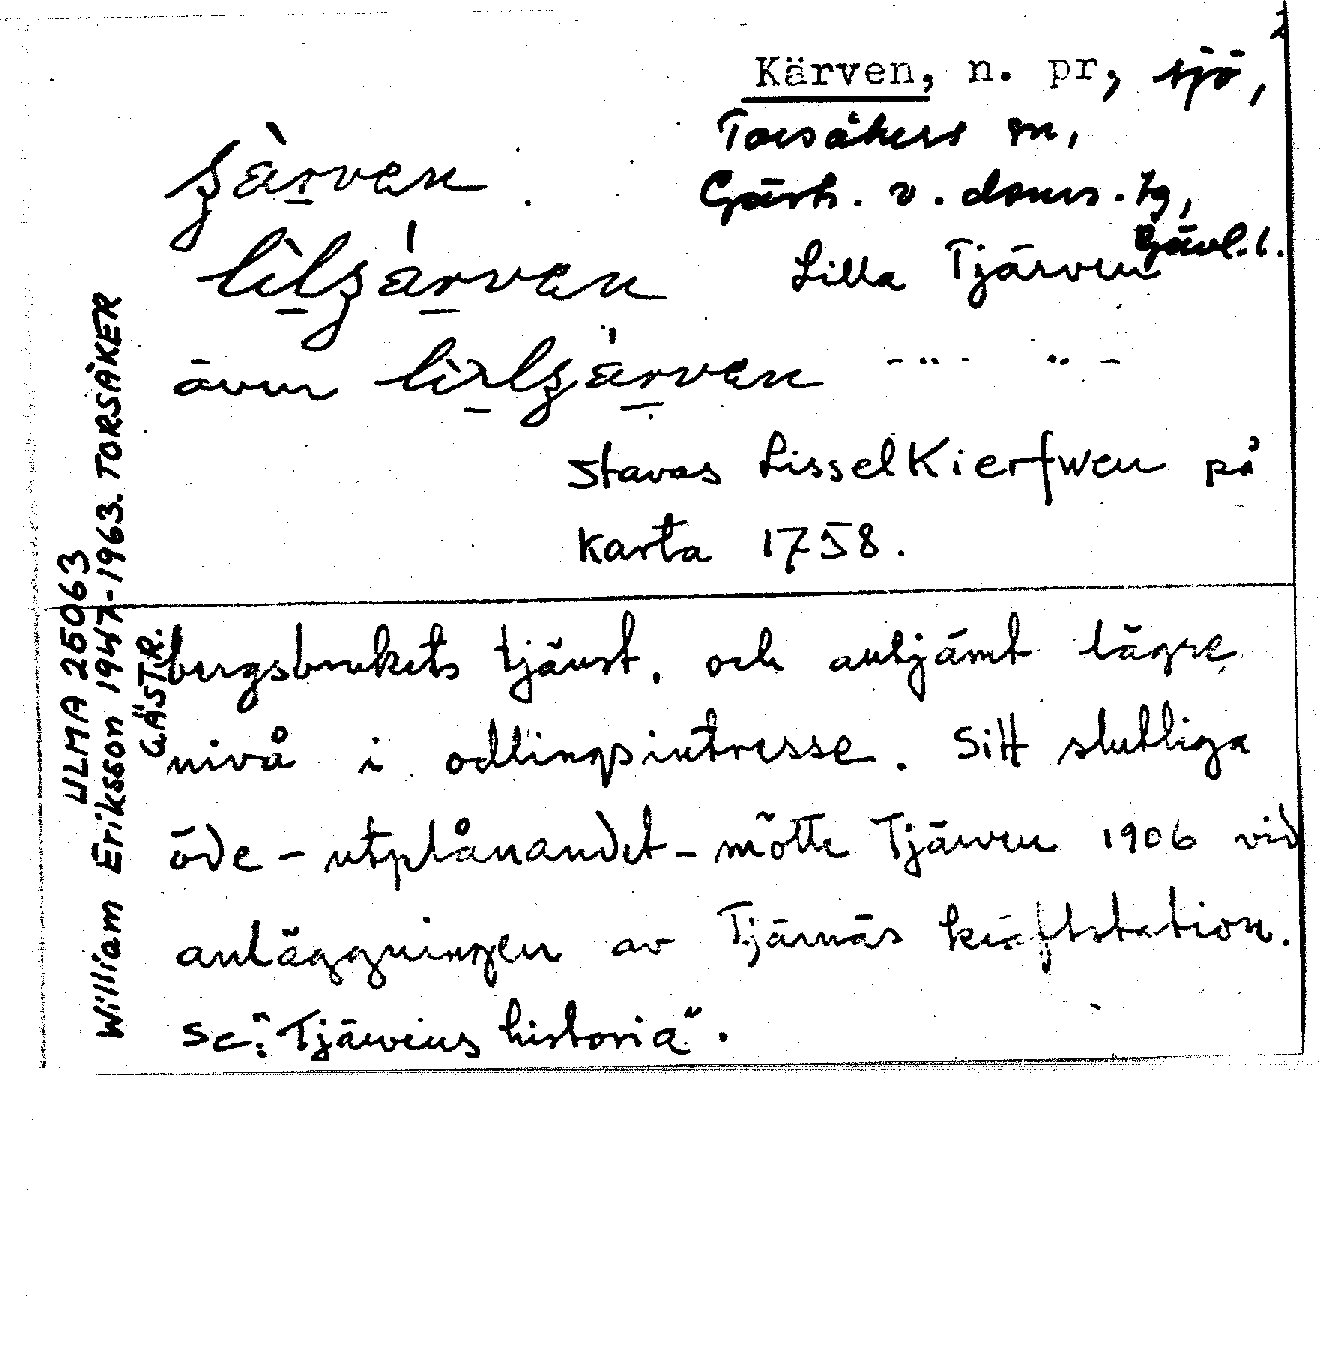 Kärven, n. pr, sjö,
Torsåkers sn,
Gästr. v. doms. tg,
Gävl. l.
Lilla Tjärven
även
stavas Lissel Kierfwen på
karta 1758.
bergsbrukets tjänst, och alltjämt lägre
nivå i odlingsintresse. Sitt slutliga
öde – utplånandet – mötte Tjärven 1906 vid
anläggningen av Tjärnäs kraftstation.
Se: "Tjärvens historia".
ULMA 25063
William Eriksson 1947-1963. TORSÅKER
GÄSTR.